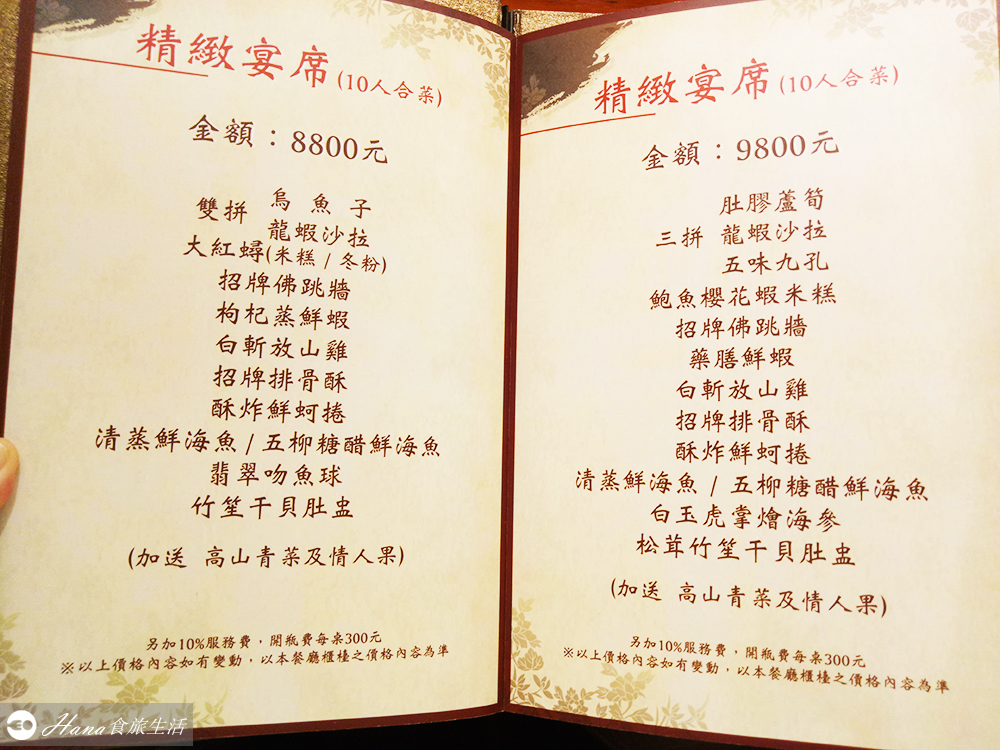 精緻宴席(10人合菜)
金額：8800元
雙拼 烏魚子
龍蝦沙拉
大紅蟳(米糕 / 冬粉)
招牌佛跳牆
枸杞蒸鮮蝦
白斬放山雞
招牌排骨酥
酥炸鮮蚵捲
清蒸鮮海魚 / 五柳糖醋鮮海魚
翡翠吻魚球
竹笙干貝肚盅
(加送 高山青菜及情人果)
另加10%服務費，開瓶費每桌300元
※以上價格內容如有變動，以本餐廳櫃檯之價格內容為準
精緻宴席(10人合菜)
金額：9800元
肚膠蘆筍
三拼 龍蝦沙拉
五味九孔
鮑魚櫻花蝦米糕
招牌佛跳牆
藥膳鮮蝦
白斬放山雞
招牌排骨酥
酥炸鮮蚵捲
清蒸鮮海魚 / 五柳糖醋鮮海魚
白玉虎掌燴海參
松茸竹笙干貝肚盅
(加送 高山青菜及情人果)
另加10%服務費，開瓶費每桌300元
※以上價格內容如有變動，以本餐廳櫃檯之價格內容為準
Hana食旅生活